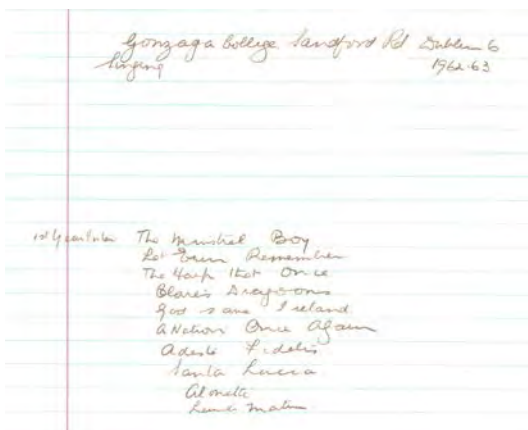 Gonzaga College Sandford Rd Dublin 6
Singing 1962-63
1st Year
The Minstrel Boy
Let Erin Remember
The Harp that Once
Clare's Dragoons
God save Ireland
A Nation Once Again
Adeste Fidelis
Santa Lucia